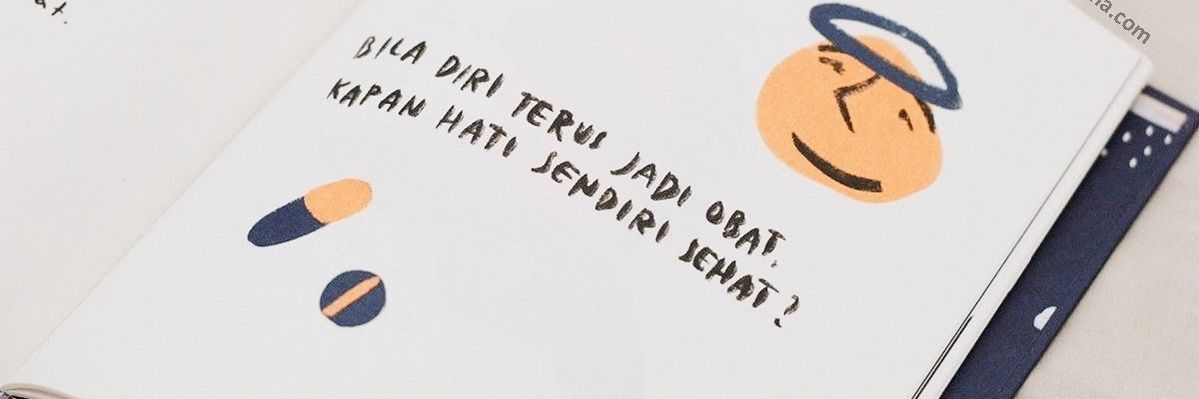 BILA DIRI TERUS JADI OBAT,
KAPAN HATI SENDIRI SEHAT?